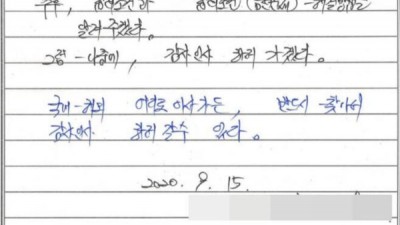 알려 주겠다.
그럼 - 나중에, 감사인사 하러 가겠다.
국내-해외 어디로 이사가든, 반드시 - 찾아서
감사인사 하러 갈수 있다.
2020. 9. 15.